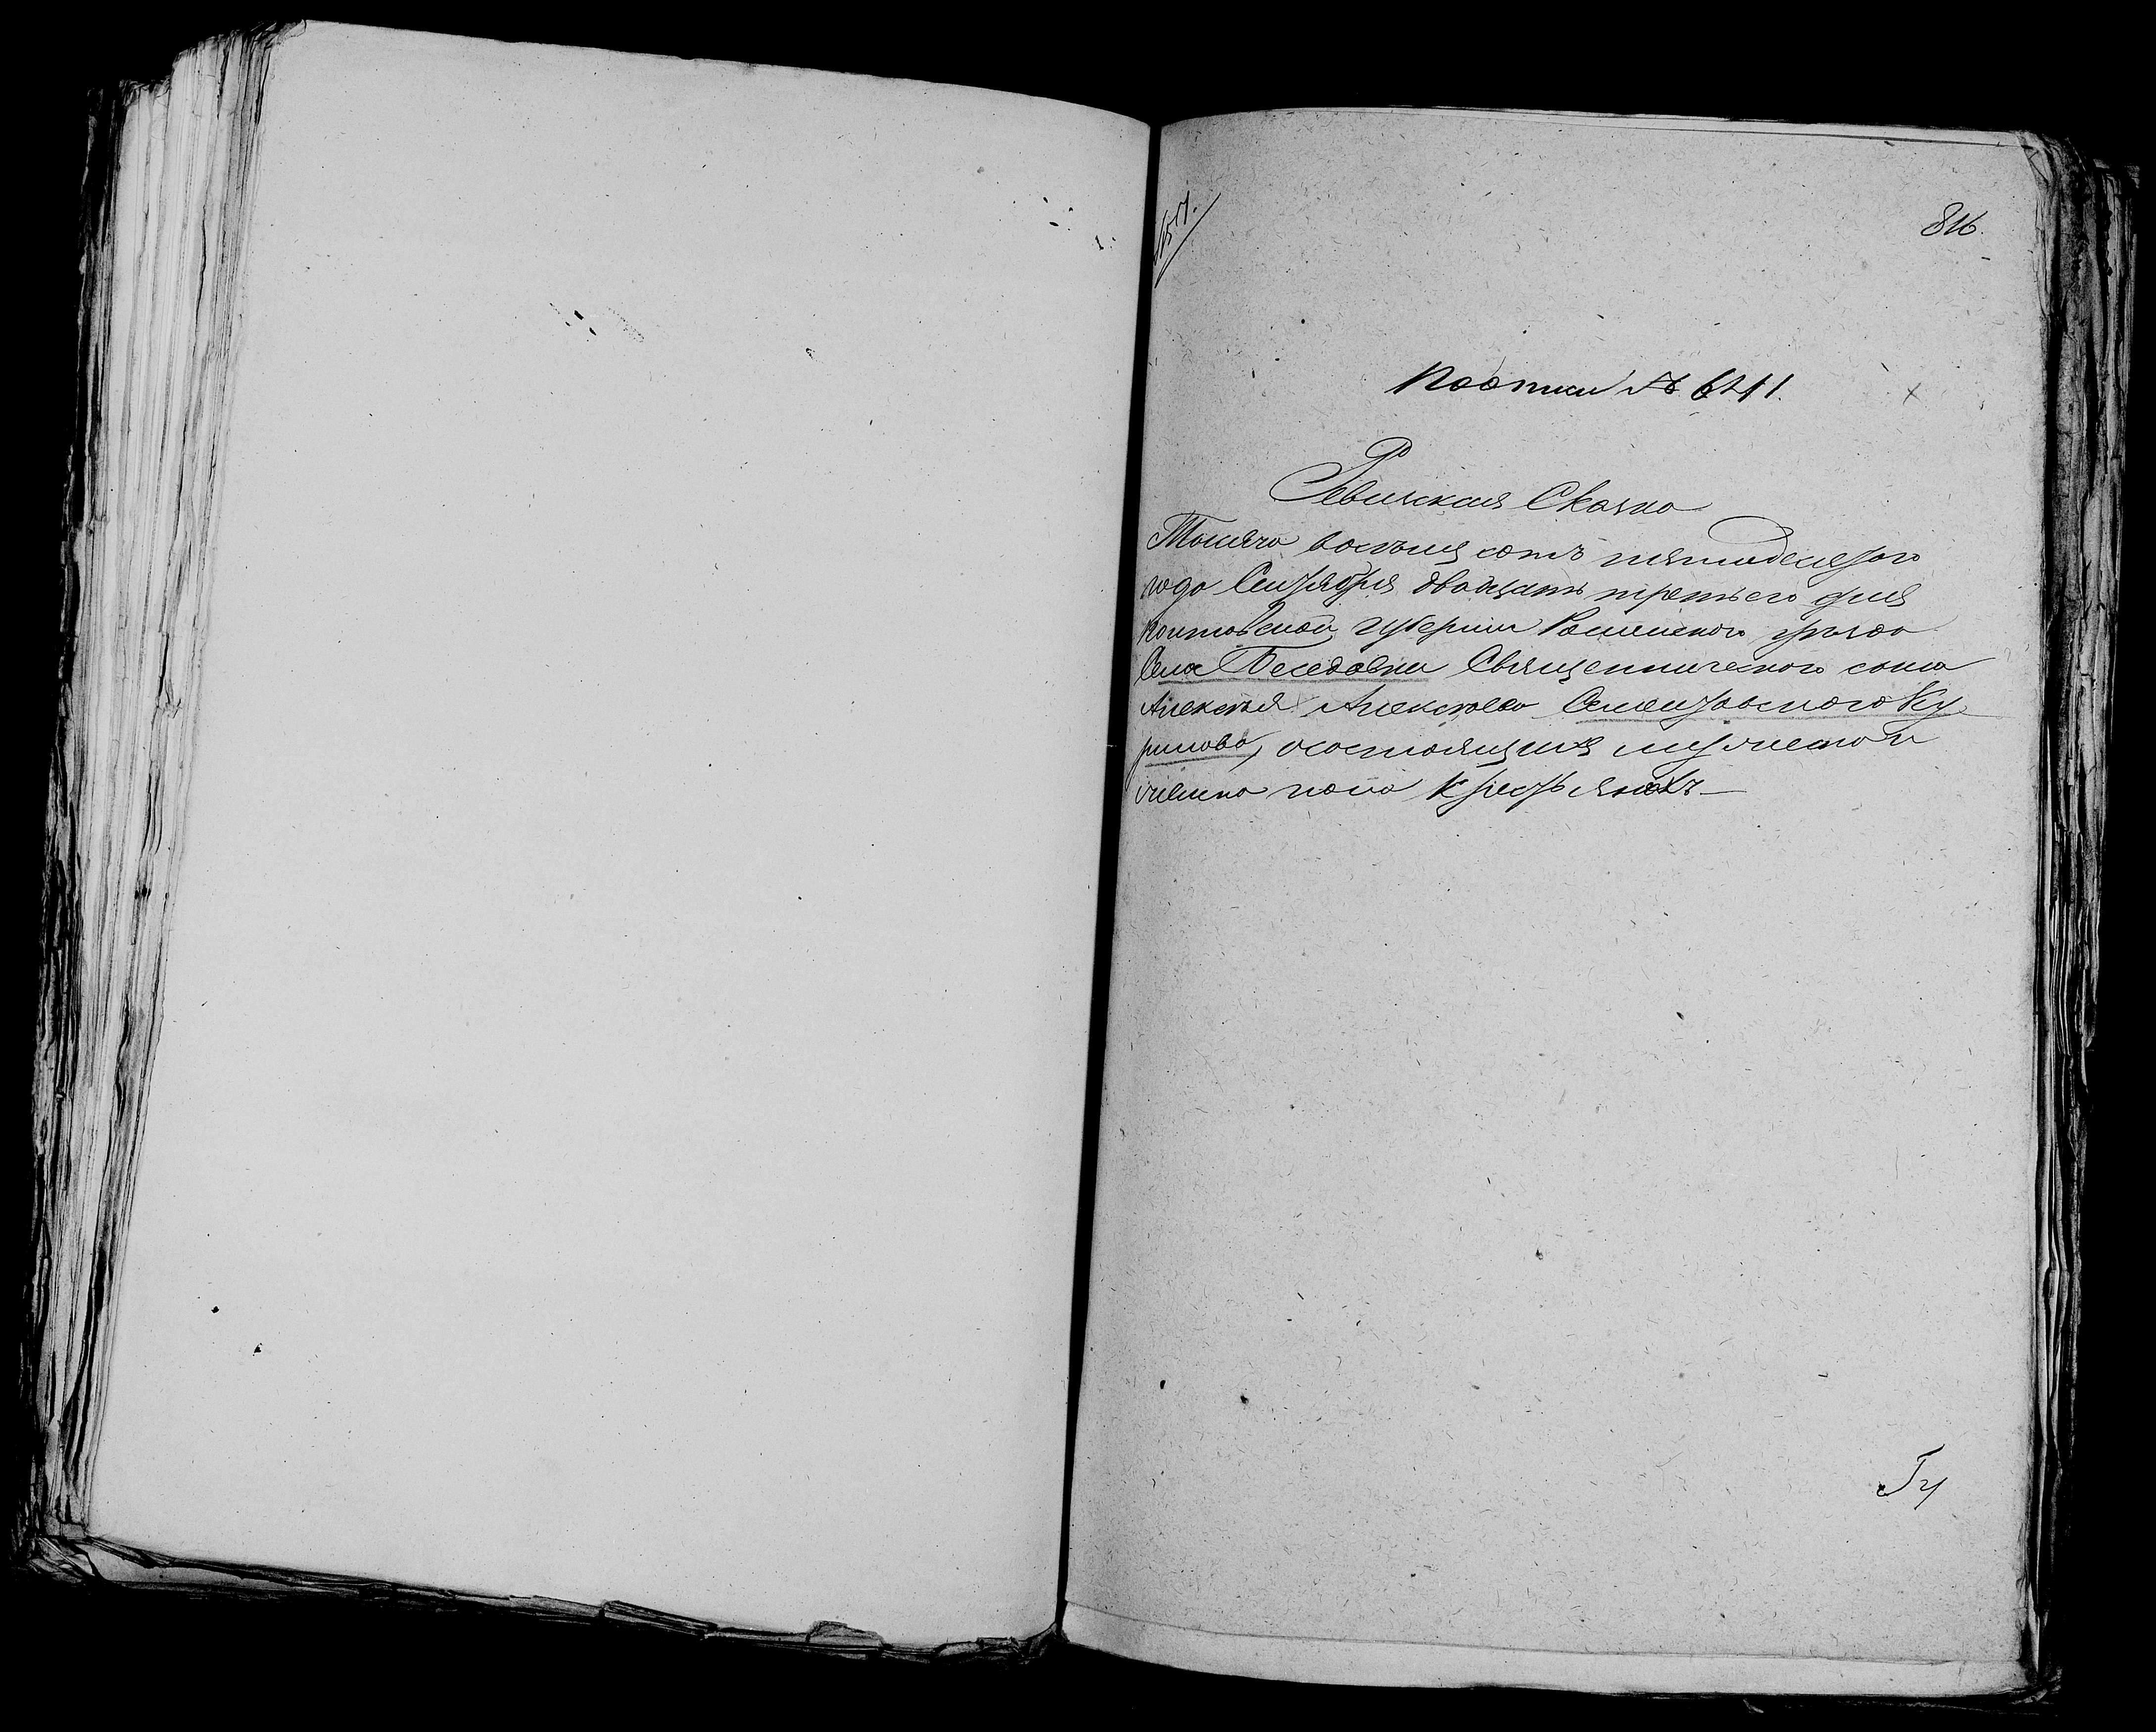 816.
По описи № 6211.
Ревизская Сказка
Тысяча восемь сотъ пятидесятого
года Сентября двадцать третьего дня
Полтавской губернии Роменского уезда
Села Беседовки Священнического сына
Алексея Алексеева Сементовского Ку
рилова, о состоящихъ мужеска и
женска пола крестьянахъ